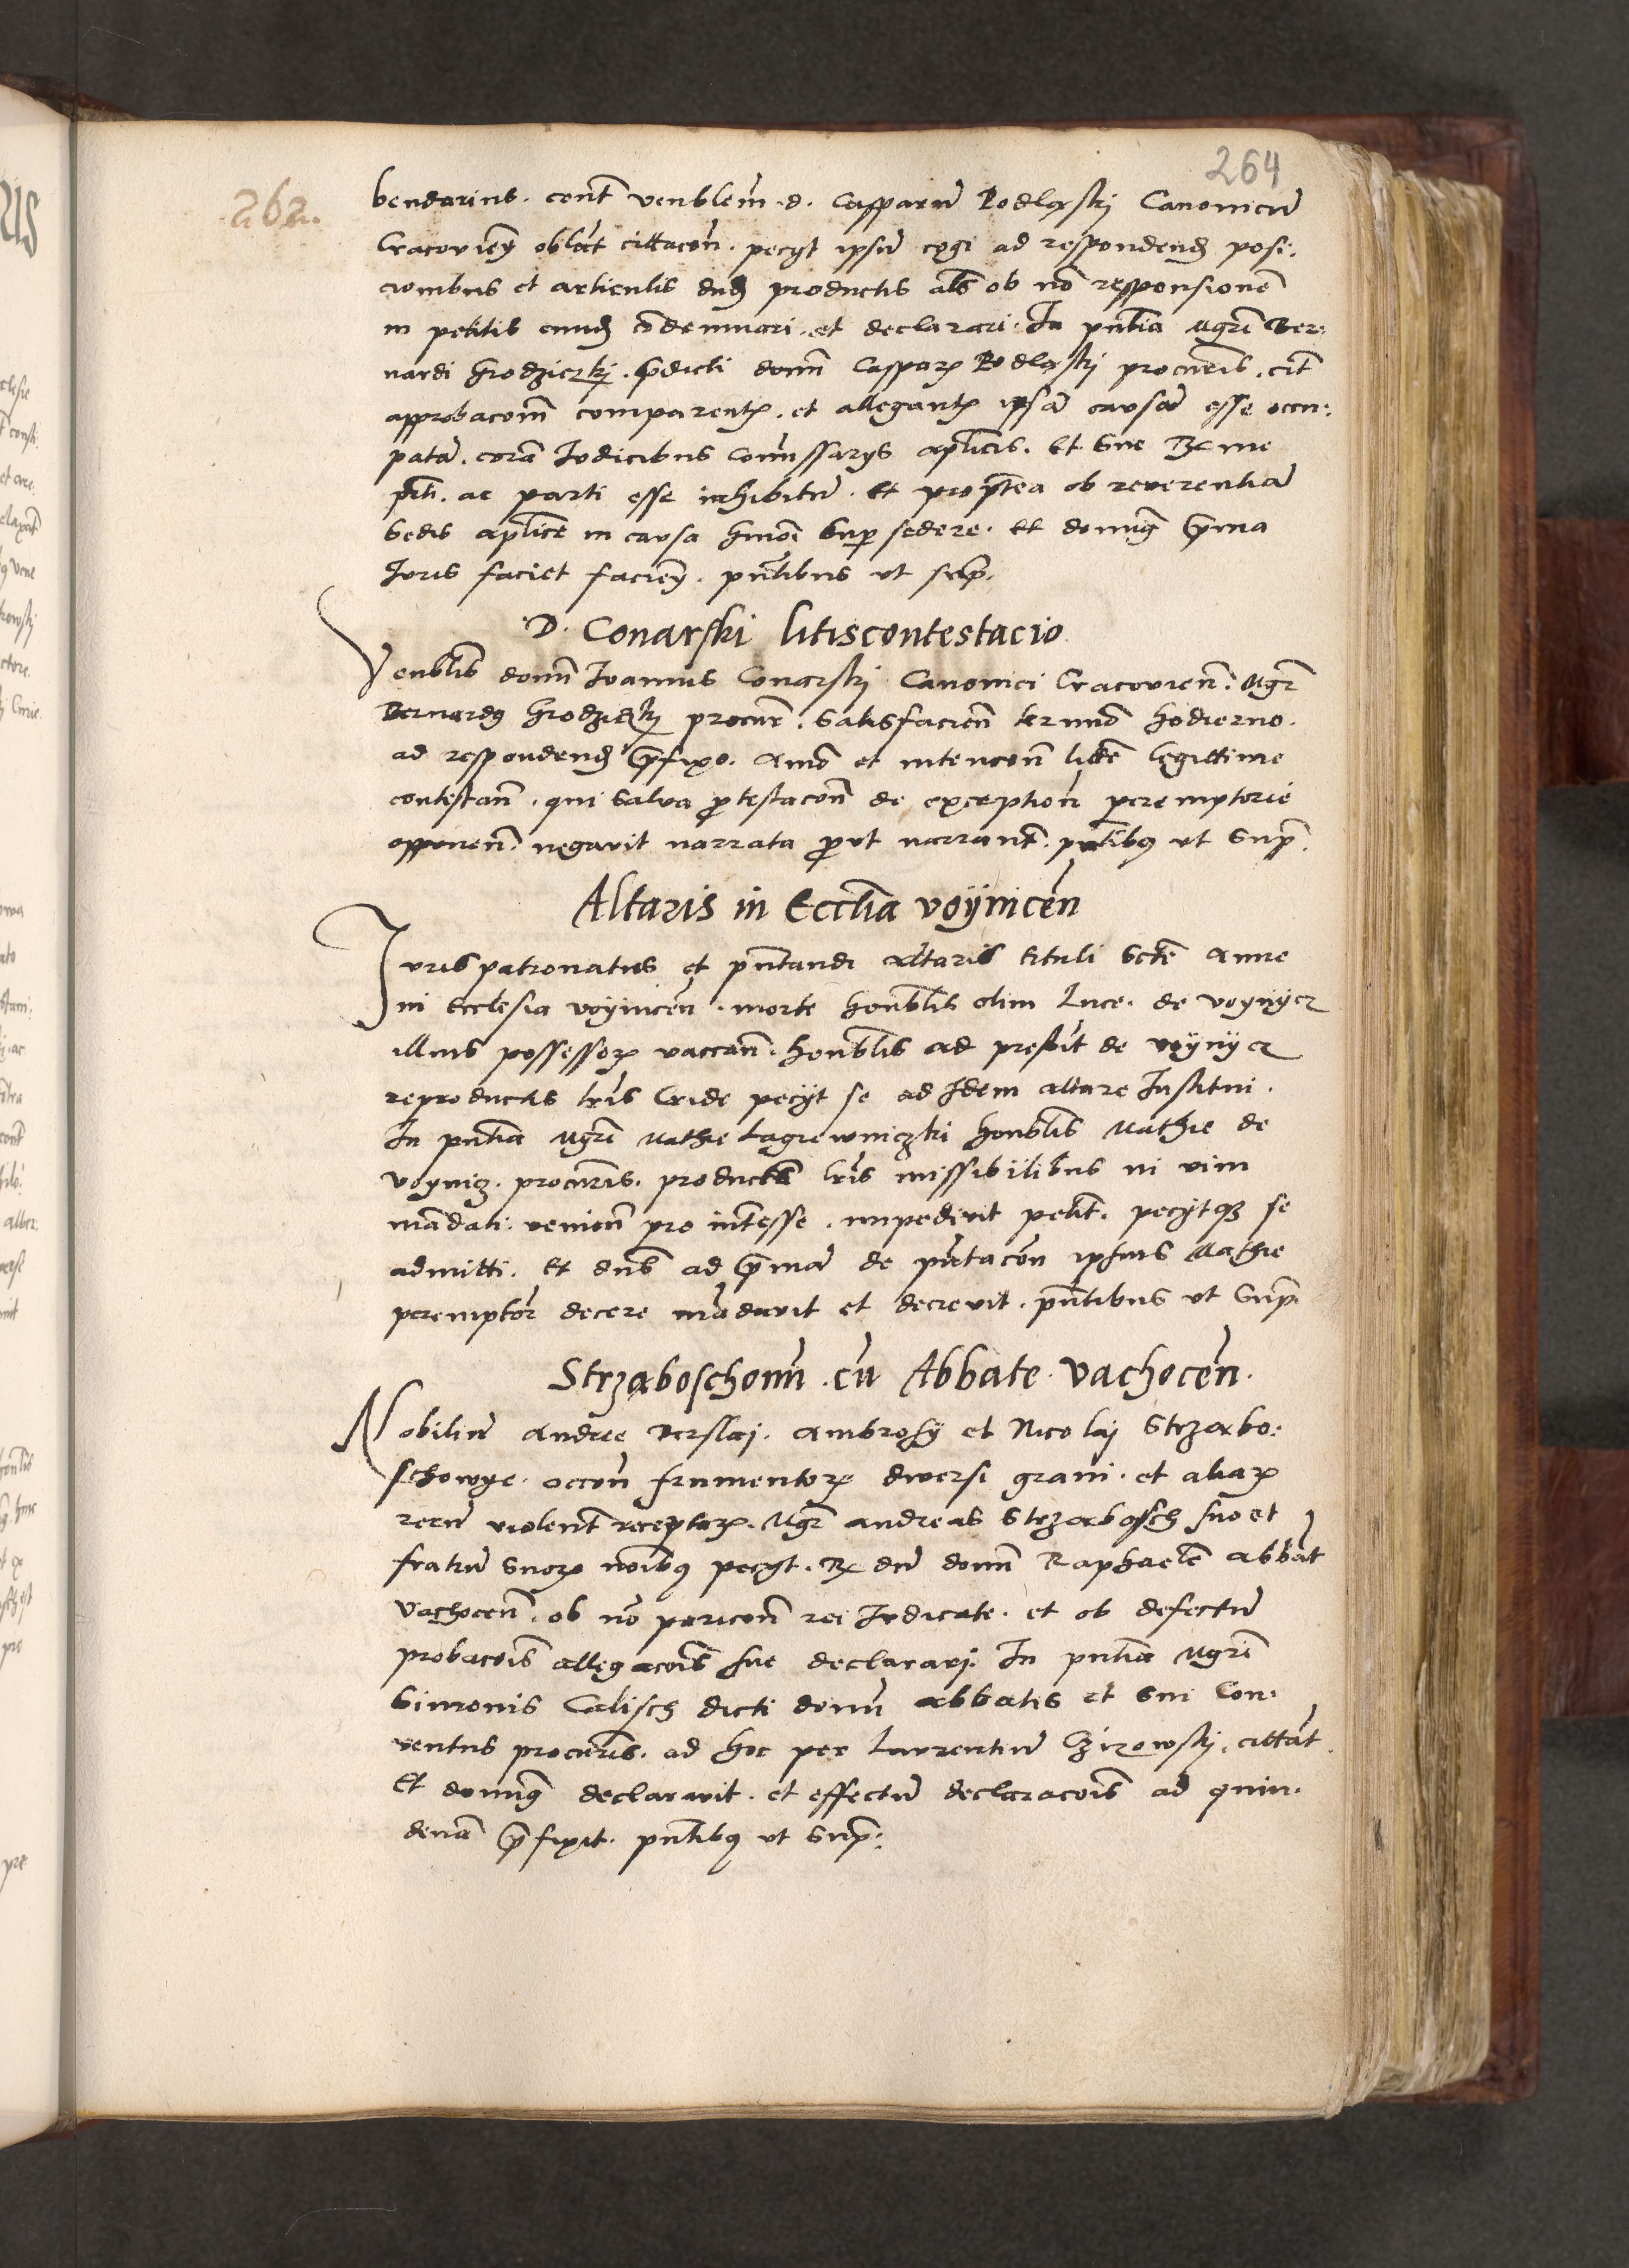 264
262.
bendarius. cont venblem. d. Casparu Podlaski Canonicu
Cracovien oblat cittacon. pecyt ipsu cogi ad respondend posi:
cionibus et articulis dud productis als ob no responsione
in petitis eiusd condemnari. et declarari. In pntia Mgri Ber:
nardi Grodziczki. pdicti domini Caspar Podlaski procuris. cit
approbacom comparent. et allegant ipsa causa esse occu:
pata. cora Iudicibus Comissarys aplicis. Et Sue R me
pti. ac parti esse inhibitu. Et proptea ob reverentia
Sedis aplice in causa hmoi Sup sedere. Et domig pma
Iuris faciet facien. pntibus ut sup.
D. Conarski litiscontestacio
Venblis domi Ioannis Conarski Canonici Cracovien. Mgr
Bernardg Grodziczki procur. Satisfacien termno hodierno.
ad respondend pfixo. Aimo et intencon lite legittime
contestan. qui Salva protestacon de exception peremptorie
opponen. negavit narrata prout narrant. pntibg ut Sup.
Altaris in Ecclia voynicen
Iuris patronatus et pntandi altaris tituli Scte Anne
in Ecclesia voynicen. morte honblis olim Luce. de voynycz
illius possessor vaccan. honblis ad presbit de voynycz
reproductis lris Cride pecyt se ad Idem altare Institui.
In pntia Mgri Mathie Lagiewniczki honblis Mathie de
voynicz. procuris. productis lris missibilibus in vim
mandati. venien pro intesse. impedivit petit. pecytq se
admitti. Et dns ad pma de pntacon ipsius Mathie
peremptor decere madavit et decrevit. pntibus ut Sup
Strzaboschonu. cu Abbate. vachocen.
Nobiliu Andree Berslai. Ambrosy et Nicolai Strzabo:
schowye. occon frumentor diversi grani. et aliar
reru violent receptar. Mgr Andreas Strzabosch suo et
fratru Suor noibg pecyt. R du domi Raphaele Abbat
Vachocen. ob no paricon rei Iudicate. et ob defectu
probacois allegacois sue declarari. In pntia Mgri
Simonis Calisch dicti domi abbatis et Sui Con:
ventus procuris. ad hoc per Laurentiu Czizowski. cittat.
Et domig declaravit. et effectu declaracois ad quin.
dena pfixit. pntibg ut Sup.